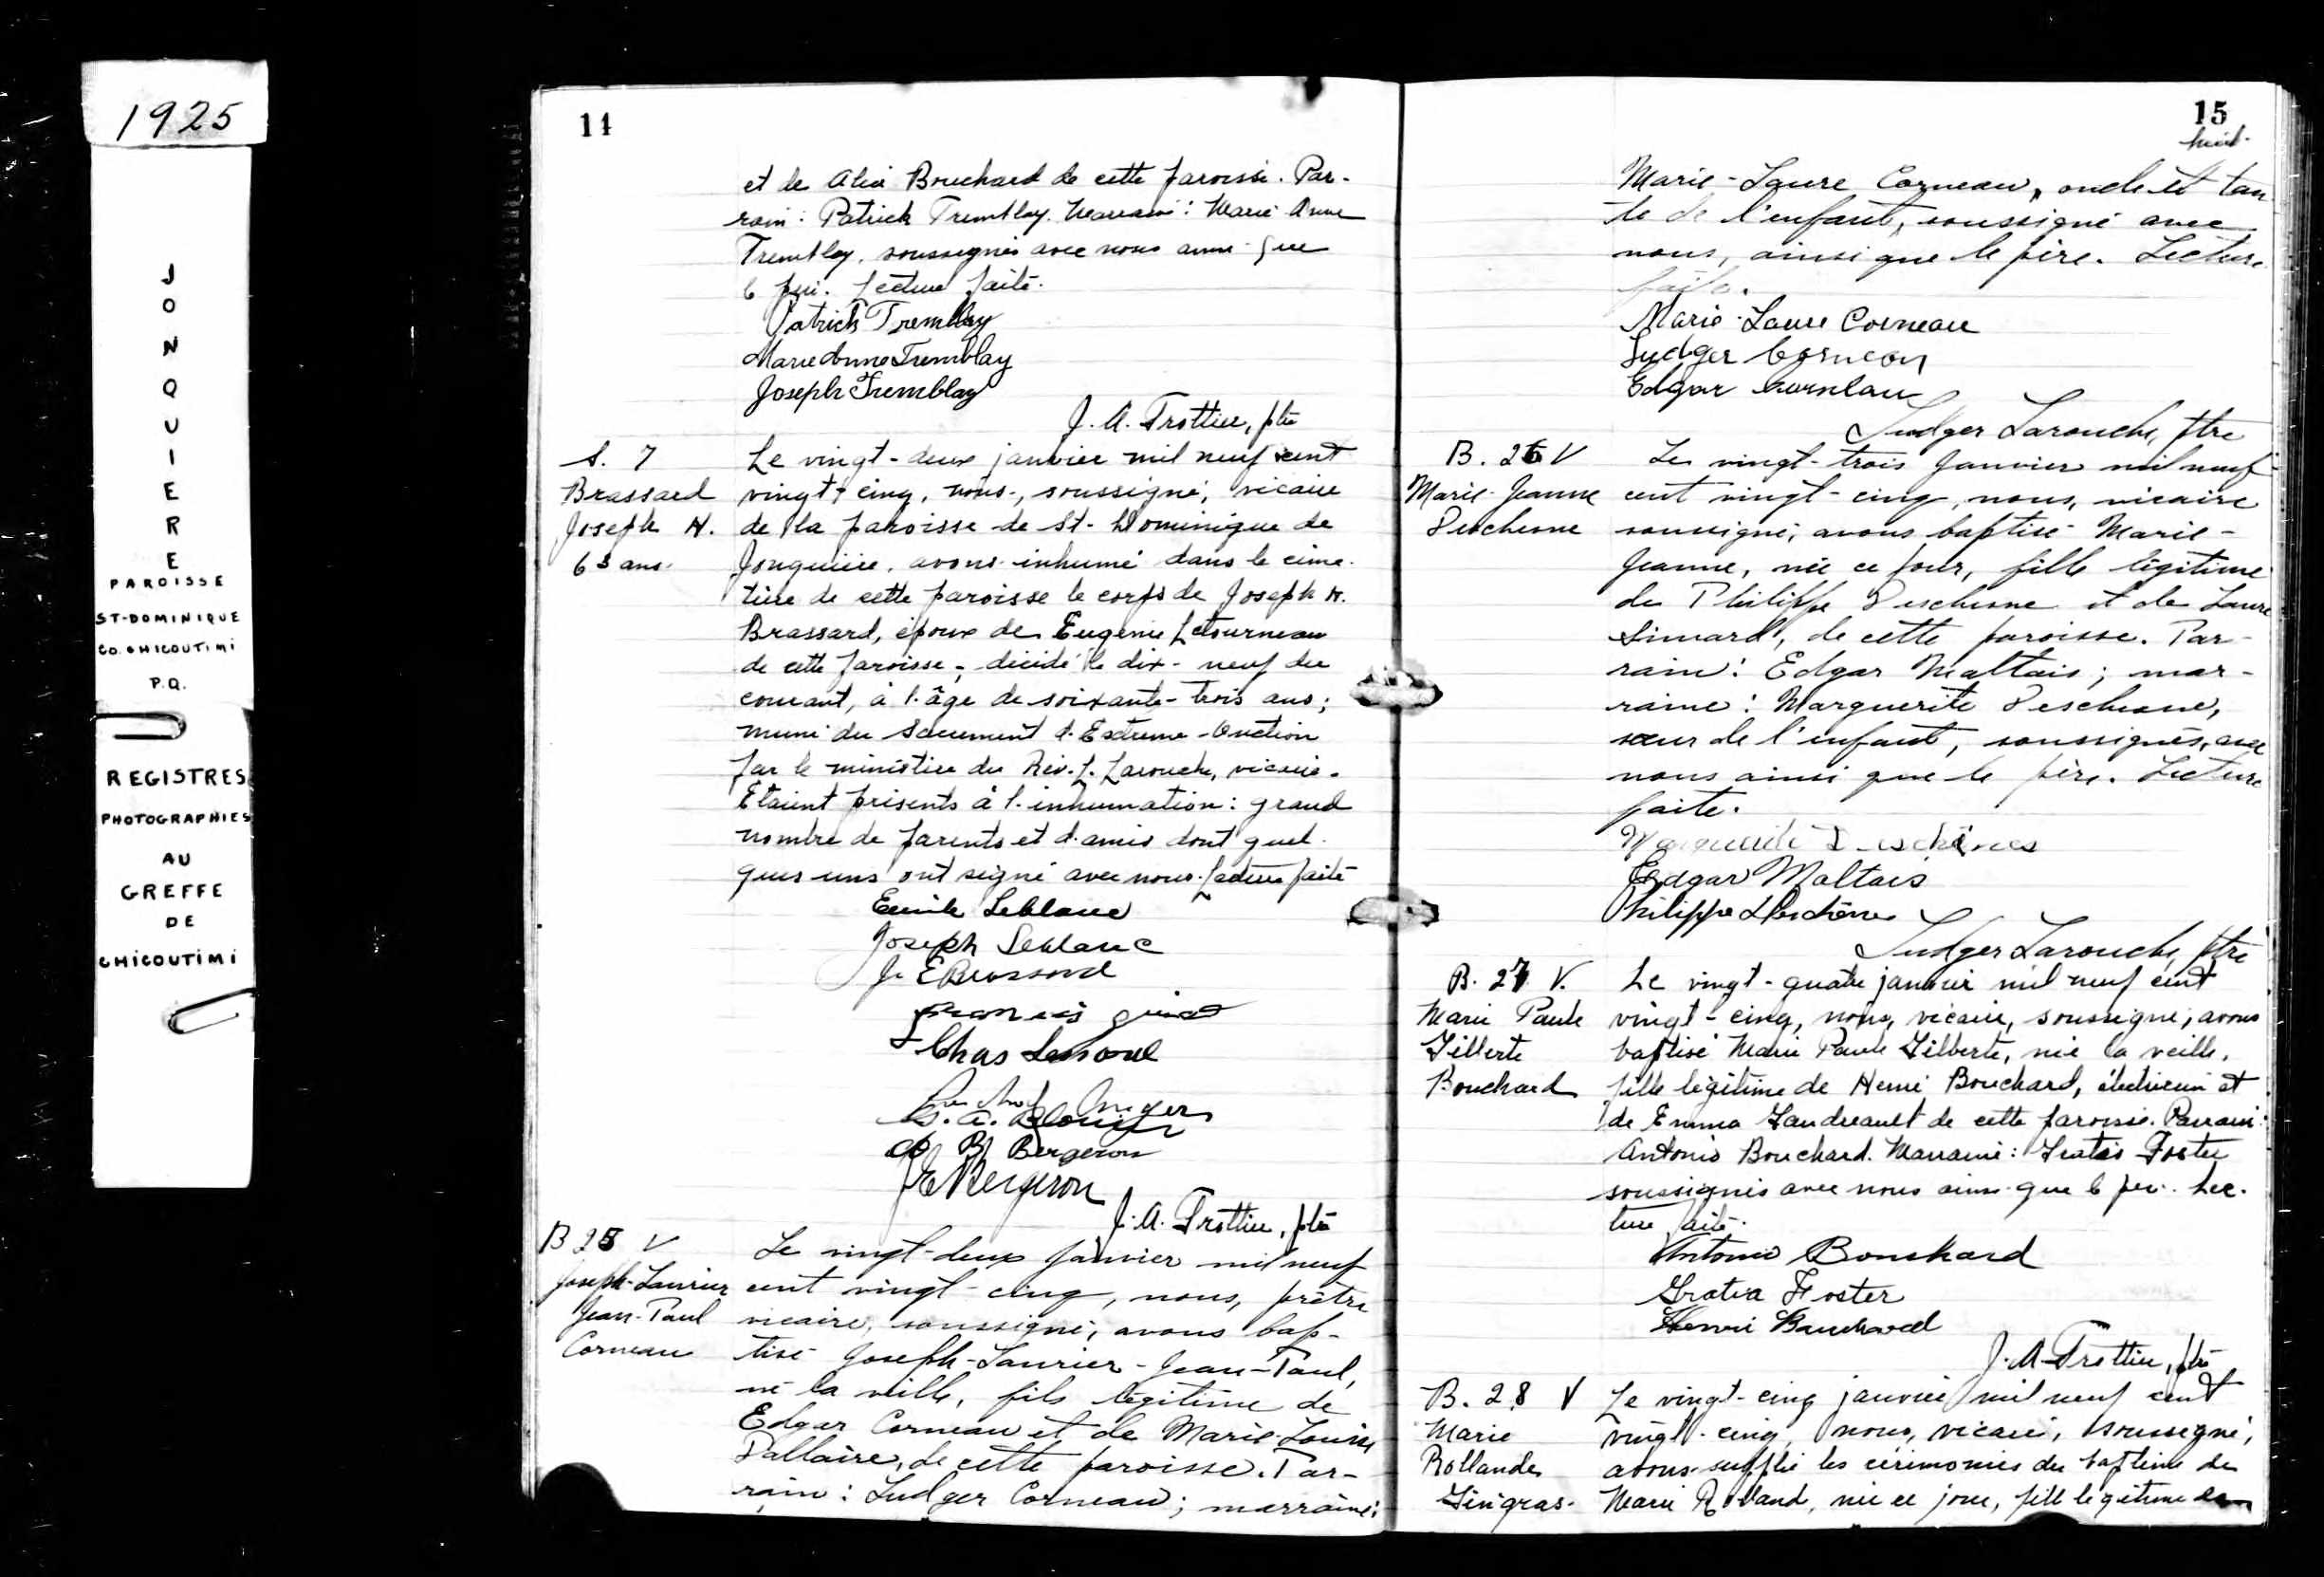 1925
J
O
N
Q
U
I
E
R
E
PAROISSE
ST-DOMINIQUE
CO. CHICOUTIMI
P.Q.
REGISTRES
PHOTOGRAPHIES
AU
GREFFE
DE
CHICOUTIMI
14
et de Alice Bouchard de cette paroisse. Par-
rain: Patrick Tremblay. Marraine: Marie Anne
Tremblay, soussignés avec nous ainsi que
le père. Lecture faite.
Patrick Tremblay
Marie Anne Tremblay
Joseph Tremblay
J. A. Trottier, ptre
S. 7
Brassard
Joseph H.
63 ans.
Le vingt-deux janvier mil neuf cent
vingt-cinq, nous, soussigné, vicaire
de la paroisse de St-Dominique de
Jonquière, avons inhumé dans le cime-
tière de cette paroisse le corps de Joseph H.
Brassard, époux de Eugénie Letourneau
de cette paroisse, décédé le dix-neuf du
courant, à l'âge de soixante-trois ans;
muni du Sacrement d'Extreme-Onction
par le ministère du Rév. L. Larouche, vicaire.
Etaient présents à l'inhumation: grand
nombre de parents et d'amis dont quel-
ques uns ont signé avec nous. Lecture faite
Emile Leblanc
Joseph Leblanc
J. E Brassard
Chas
G. A. Blouin
B Bergeron
J E Bergeron
J. A. Trottier, ptre
B 25 V
Joseph-Laurier
Jean-Paul
Corneau
Le vingt-deux Janvier mil neuf
cent vingt-cinq, nous, prêtre
vicaire, soussigné, avons bap-
tisé Joseph-Laurier-Jean-Paul,
né la veille, fils légitime de
Edgar Corneau et de Marie-Louise
Dallaire, de cette paroisse. Par-
rain: Ludger Corneau; marraine:
15
huit.
Marie-Laure Corneau, oncle et tan-
te de l'enfant, soussigné avec
nous, ainsi que le père. Lecture
faite.
Marie-Laure Corneau
Ludger Corneau
Edgar Corneau
Ludger Larouche, ptre
B. 26 V
Marie-Jeanne
Deschesne
Le vingt-trois Janvier mil neuf
cent vingt-cinq, nous, vicaire
soussigné, avons baptisé Marie-
Jeanne, née ce jour, fille légitime
de Philippe Deschesne et de Laure
Simard, de cette paroisse. Par-
rain: Edgar Maltais; mar-
raine: Marguerite Deschesne,
sœur de l'enfant, soussignés, avec
nous ainsi que le père. Lecture
faite.
Marguerite Deschênes
Edgar Maltais
Philippe Deschênes
Ludger Larouche, ptre
B. 27 V.
Marie Paule
Gilberte
Bouchard
Le vingt-quatre janvier mil neuf cent
vingt-cinq, nous, vicaire, soussigné, avons
baptisé Marie Paule Gilberte, née la veille,
fille légitime de Henri Bouchard, électricien et
de Emma Gaudreault de cette paroisse. Parrain:
Antonio Bouchard. Marraine: Gratia Foster
soussignés avec nous ainsi que le père. Lec-
ture faite.
Antonio Bouchard
Gratia Foster
Henri Bouchard
J. A. Trottier, ptre
B. 28 V
Marie
Rollande
Gingras.
Le vingt-cinq janvier mil neuf cent
vingt-cinq, nous, vicaire, soussigné,
avons suppléé les cérémonies du baptême de
Marie Rolland, née ce jour, fille légitime de